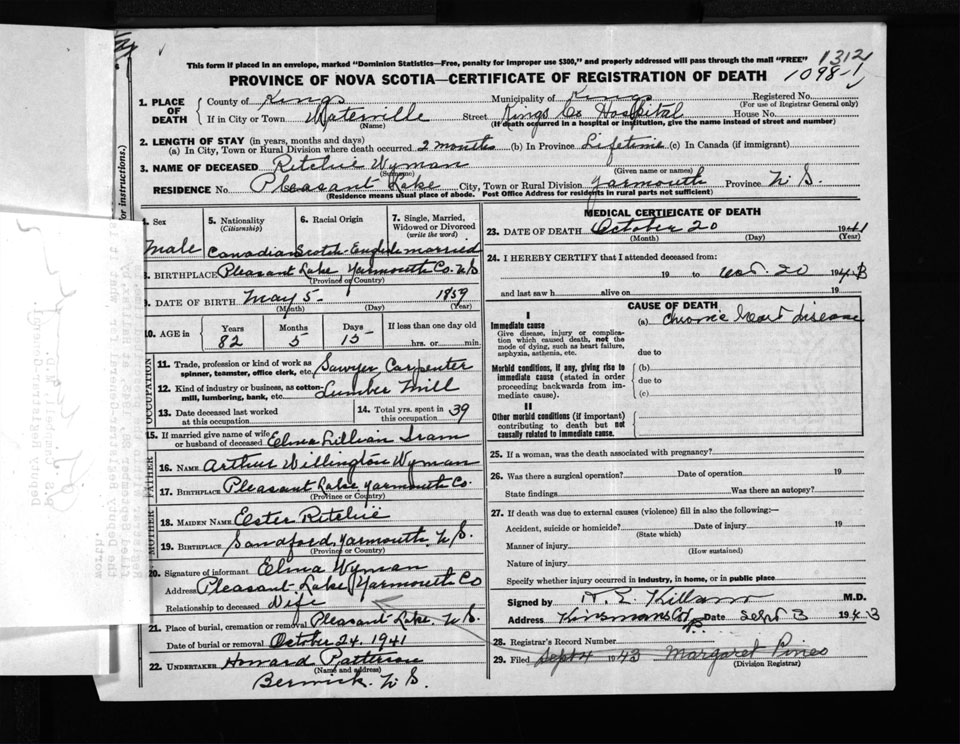 1312
1098-1
This form if placed in an envelope, marked "Dominion Statistics—Free, penalty for improper use $300," and properly addressed will pass through the mail "FREE"
PROVINCE OF NOVA SCOTIA—CERTIFICATE OF REGISTRATION OF DEATH
1. PLACE OF DEATH County of Kings Municipality of Kings Registered No.
(For use of Registrar General only)
If in City or Town Waterville Street Kings Co Hospital House No.
(Name) (If death occurred in a hospital or institution, give the name instead of street and number)
2. LENGTH OF STAY (in years, months and days)
(a) In City, Town or Rural Division where death occurred 2 months (b) In Province Lifetime (c) In Canada (if immigrant)
3. NAME OF DECEASED Ritchie Wyman
(Surname) (Given name or names)
RESIDENCE No. Pleasant Lake City, Town or Rural Division Yarmouth Province N S.
(Residence means usual place of abode. Post Office Address for residents in rural parts not sufficient)
for instructions.)
4. Sex 5. Nationality 6. Racial Origin 7. Single, Married, Widowed or Divorced
(Citizenship) (write the word)
Male Canadian Scotch-English married
8. BIRTHPLACE Pleasant Lake Yarmouth Co. N S
(Province or Country)
9. DATE OF BIRTH May 5 1859
(Month) (Day) (Year)
10. AGE in Years Months Days If less than one day old
82 5 15 hrs. or min.
OCCUPATION
11. Trade, profession or kind of work as spinner, teamster, office clerk, etc. Sawyer Carpenter
12. Kind of industry or business, as cotton-mill, lumbering, bank, etc. Lumber Mill
13. Date deceased last worked at this occupation
14. Total yrs. spent in this occupation 39
15. If married give name of wife or husband of deceased Elma Lillian
FATHER
16. NAME Arthur Willington Wyman
17. BIRTHPLACE Pleasant Lake Yarmouth Co.
(Province or Country)
MOTHER
18. MAIDEN NAME Ester Ritchie
19. BIRTHPLACE Sandford, Yarmouth, N S.
(Province or Country)
20. Signature of informant Elma Wyman
Address Pleasant Lake Yarmouth Co
Relationship to deceased Wife
21. Place of burial, cremation or removal Pleasant Lake, N S.
Date of burial or removal October 24. 1941
22. UNDERTAKER Howard Patterson
(Name and address)
Berwick. N S.
MEDICAL CERTIFICATE OF DEATH
23. DATE OF DEATH October 20 1941
(Month) (Day) (Year)
24. I HEREBY CERTIFY that I attended deceased from:
19 to Oct. 20 194
and last saw h alive on 19
CAUSE OF DEATH
I
Immediate cause (a) Chronic heart disease
Give disease, injury or complication which caused death, not the mode of dying, such as heart failure, asphyxia, asthenia, etc.
due to
Morbid conditions, if any, giving rise to immediate cause (stated in order proceeding backwards from immediate cause).
(b)
due to
(c)
II
Other morbid conditions (if important) contributing to death but not causally related to immediate cause.
25. If a woman, was the death associated with pregnancy?
26. Was there a surgical operation? Date of operation 19
State findings Was there an autopsy?
27. If death was due to external causes (violence) fill in also the following:—
Accident, suicide or homicide? Date of injury 19
(State which)
Manner of injury
(How sustained)
Nature of injury
Specify whether injury occurred in industry, in home, or in public place
Signed by Killam M.D.
Address Date Sept 3 1943
28. Registrar's Record Number
29. Filed Sept 4 1943 Margaret Pineo
(Division Registrar)